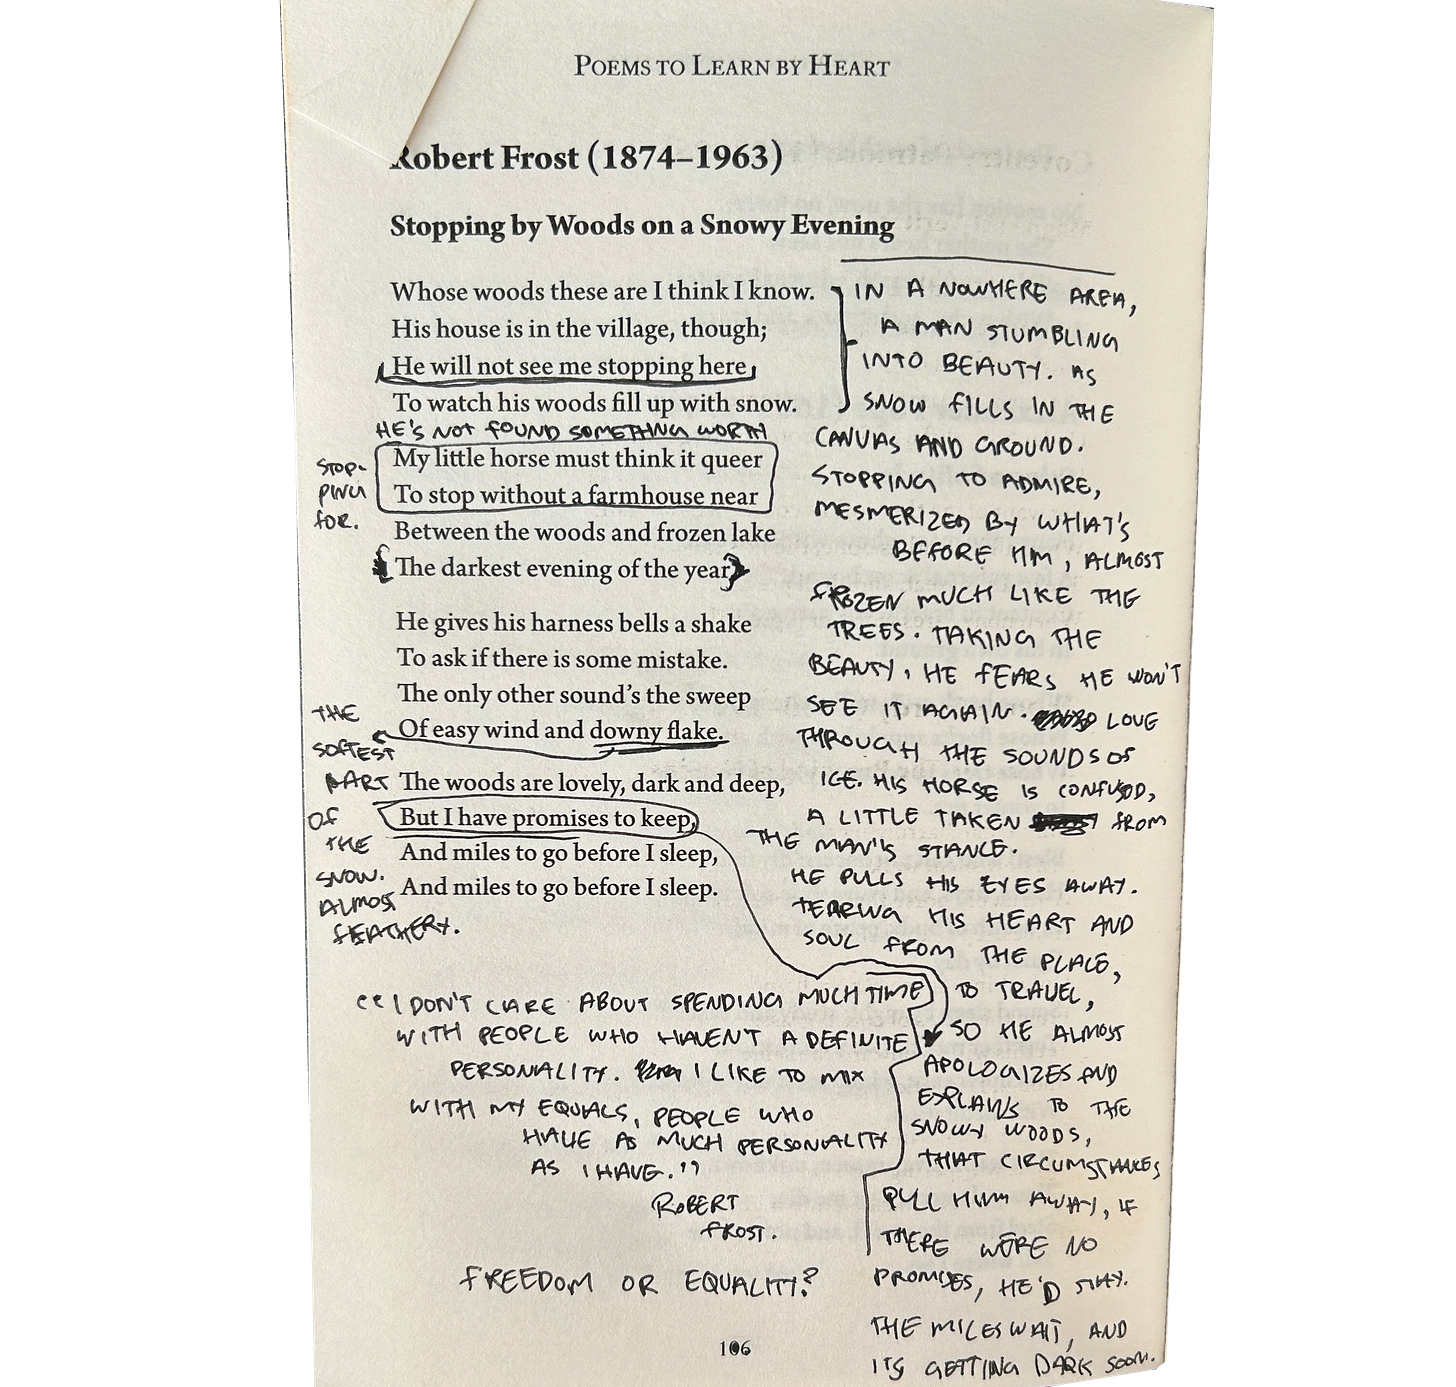 POEMS TO LEARN BY HEART
Robert Frost (1874–1963)
Stopping by Woods on a Snowy Evening
Whose woods these are I think I know.
His house is in the village, though;
He will not see me stopping here
To watch his woods fill up with snow.
HE'S NOT FOUND SOMETHING WORTH
STOP-
PING
FOR.
My little horse must think it queer
To stop without a farmhouse near
Between the woods and frozen lake
The darkest evening of the year
He gives his harness bells a shake
To ask if there is some mistake.
The only other sound's the sweep
Of easy wind and downy flake.
THE
SOFTEST
PART
OF
THE
SNOW.
ALMOST
FEATHERY.
The woods are lovely, dark and deep,
But I have promises to keep,
And miles to go before I sleep,
And miles to go before I sleep.
IN A NOWHERE AREA,
A MAN STUMBLING
INTO BEAUTY. AS
SNOW FILLS IN THE
CANVAS AND GROUND.
STOPPING TO ADMIRE,
MESMERIZED BY WHAT'S
BEFORE HIM, ALMOST
FROZEN MUCH LIKE THE
TREES. TAKING THE
BEAUTY, HE FEARS HE WON'T
SEE IT AGAIN. LOVE
THROUGH THE SOUNDS OF
ICE. HIS HORSE IS CONFUSED,
A LITTLE TAKEN FROM
THE MAN'S STANCE.
HE PULLS HIS EYES AWAY.
TEARING HIS HEART AND
SOUL FROM THE PLACE,
TO TRAVEL,
SO HE ALMOST
APOLOGIZES AND
EXPLAINS TO THE
SNOWY WOODS,
THAT CIRCUMSTANCES
PULL HIM AWAY, IF
THERE WERE NO
PROMISES, HE'D STAY.
THE MILES WAIT, AND
ITS GETTING DARK SOON.
"I DON'T CARE ABOUT SPENDING MUCH TIME
WITH PEOPLE WHO HAVEN'T A DEFINITE
PERSONALITY. I LIKE TO MIX
WITH MY EQUALS, PEOPLE WHO
HAVE AS MUCH PERSONALITY
AS I HAVE."
ROBERT
FROST.
FREEDOM OR EQUALITY?
106